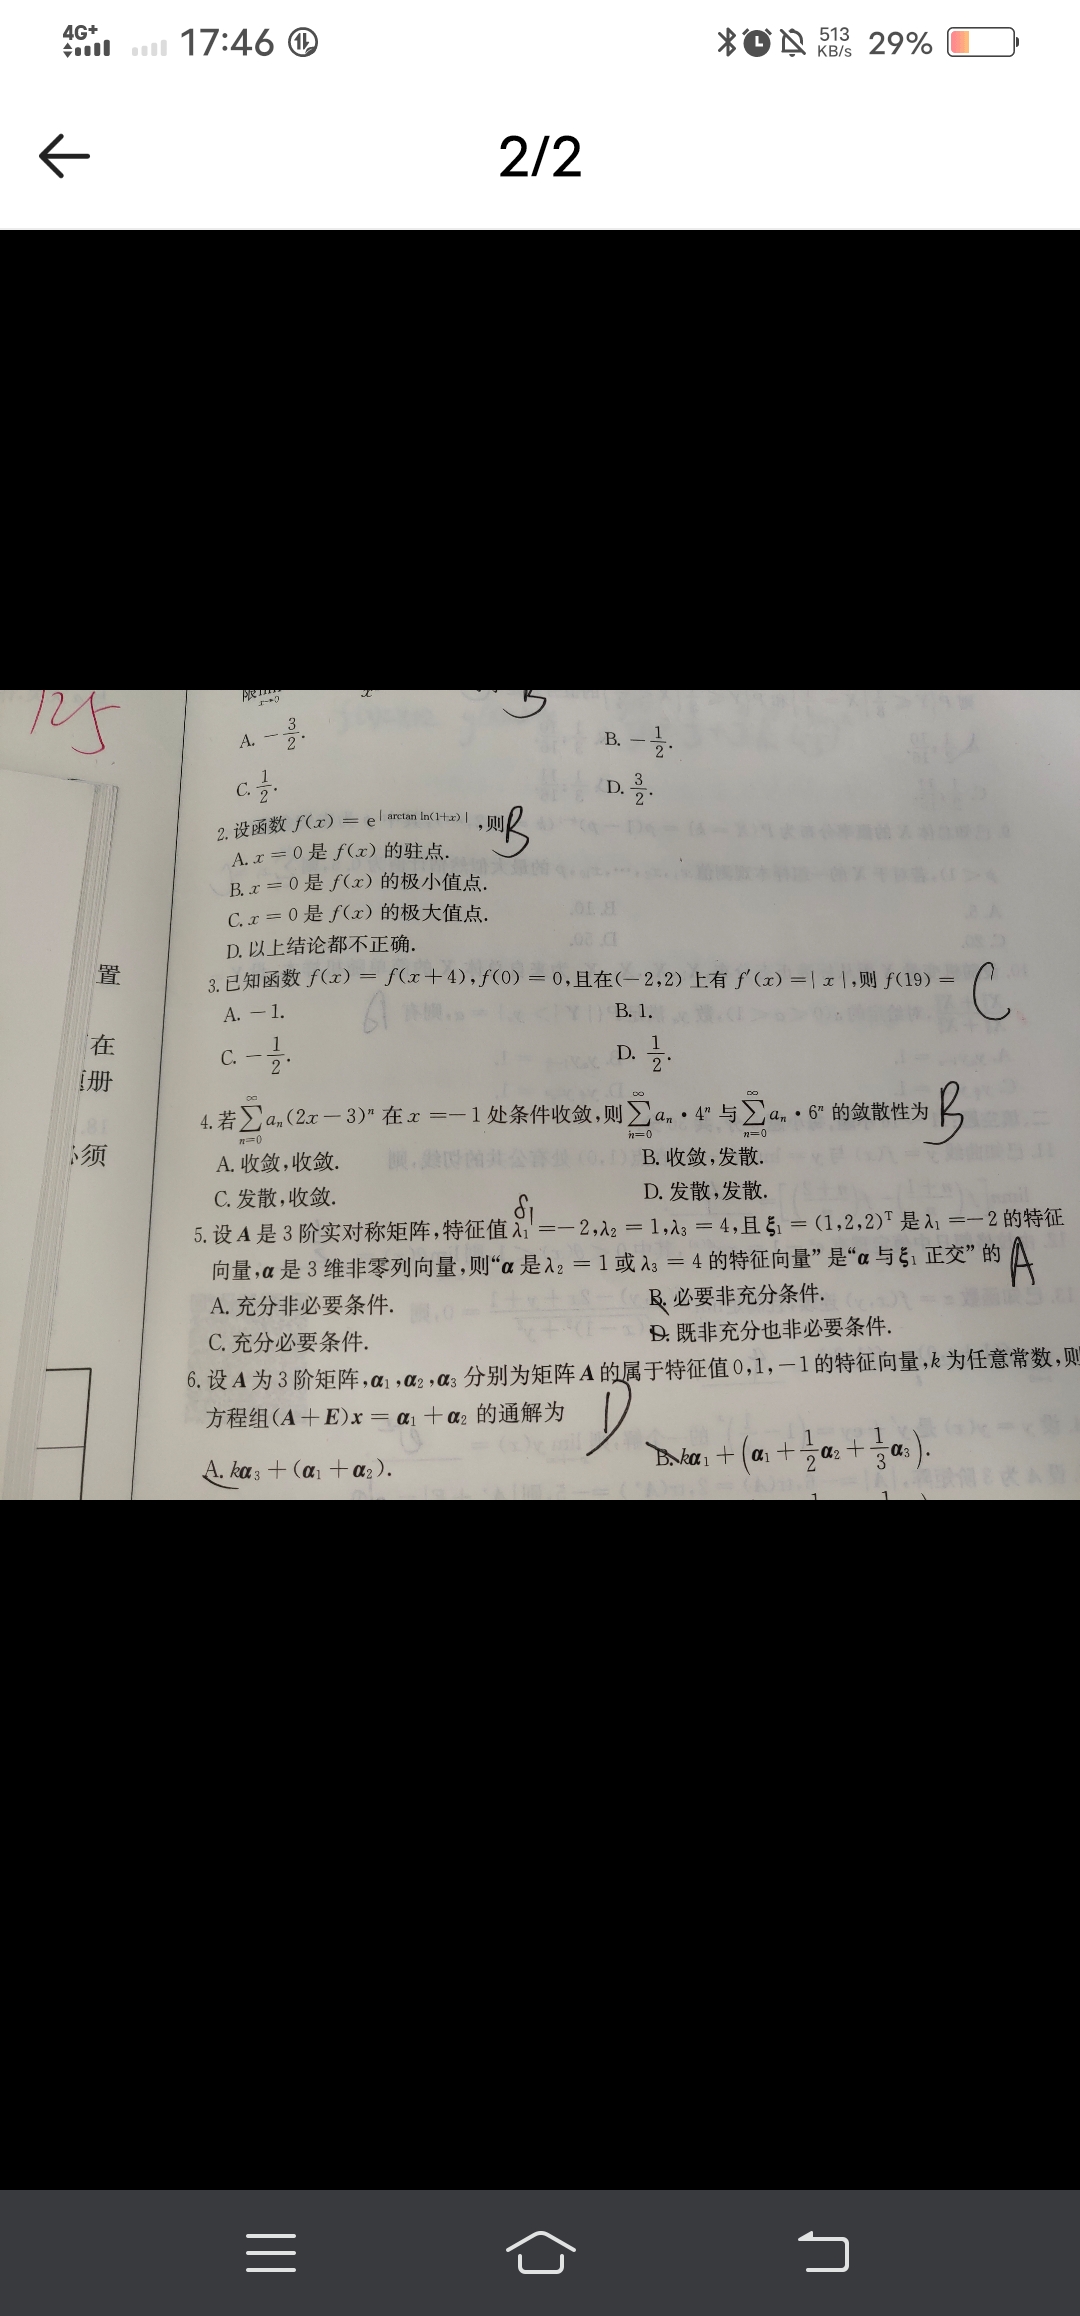 4G+
17:46
513
KB/s
29%
2/2
125
B
A. -3/2.
B. -1/2.
C. 1/2.
D. 3/2.
2. 设函数 f(x) = e^{|arctan ln(1+x)|},则 B
A. x = 0 是 f(x) 的驻点.
B. x = 0 是 f(x) 的极小值点.
C. x = 0 是 f(x) 的极大值点.
D. 以上结论都不正确.
置
3. 已知函数 f(x) = f(x+4),f(0) = 0,且在(-2,2) 上有 f′(x) =|x|,则 f(19) = C
A. -1.
B. 1.
在
C. -1/2.
D. 1/2.
册
4. 若∑_{n=0}^{∞} a_n(2x-3)^n 在 x =-1 处条件收敛,则∑_{n=0}^{∞} a_n·4^n 与∑_{n=0}^{∞} a_n·6^n 的敛散性为 B
须
A. 收敛,收敛.
B. 收敛,发散.
C. 发散,收敛.
D. 发散,发散.
5. 设 A 是 3 阶实对称矩阵,特征值 λ₁ =-2,λ₂ = 1,λ₃ = 4,且 ξ₁ = (1,2,2)^T 是 λ₁ =-2 的特征
向量,α 是 3 维非零列向量,则“α 是 λ₂ = 1 或 λ₃ = 4 的特征向量”是“α 与 ξ₁ 正交”的 A
A. 充分非必要条件.
B. 必要非充分条件.
C. 充分必要条件.
D. 既非充分也非必要条件.
6. 设 A 为 3 阶矩阵,α₁,α₂,α₃ 分别为矩阵 A 的属于特征值 0,1,-1 的特征向量,k 为任意常数,则
方程组(A+E)x = α₁+α₂ 的通解为 D
A. kα₃+(α₁+α₂).
B. kα₁+(α₁+1/2α₂+1/3α₃).